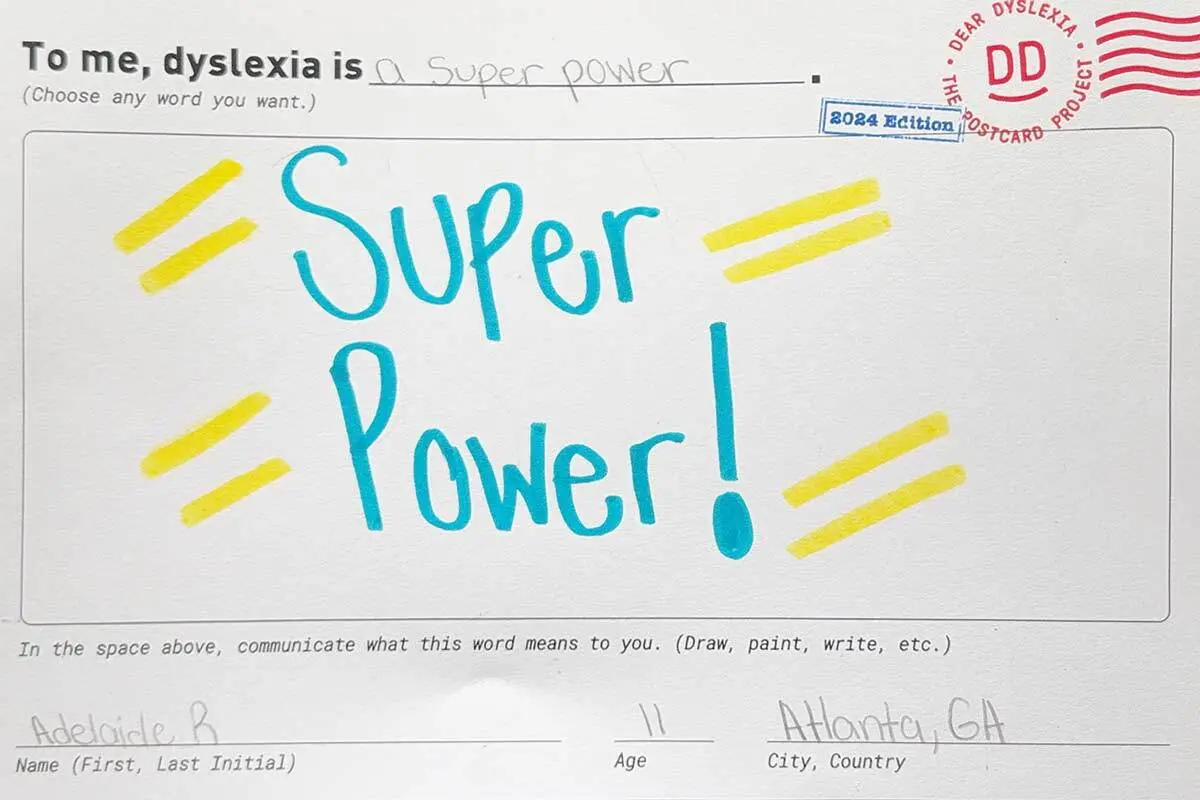 To me, dyslexia is a super power.
(Choose any word you want.)
DEAR DYSLEXIA
DD
THE POSTCARD PROJECT
2024 Edition
Super
Power!
In the space above, communicate what this word means to you. (Draw, paint, write, etc.)
Adelaide R 11 Atlanta, GA
Name (First, Last Initial) Age City, Country